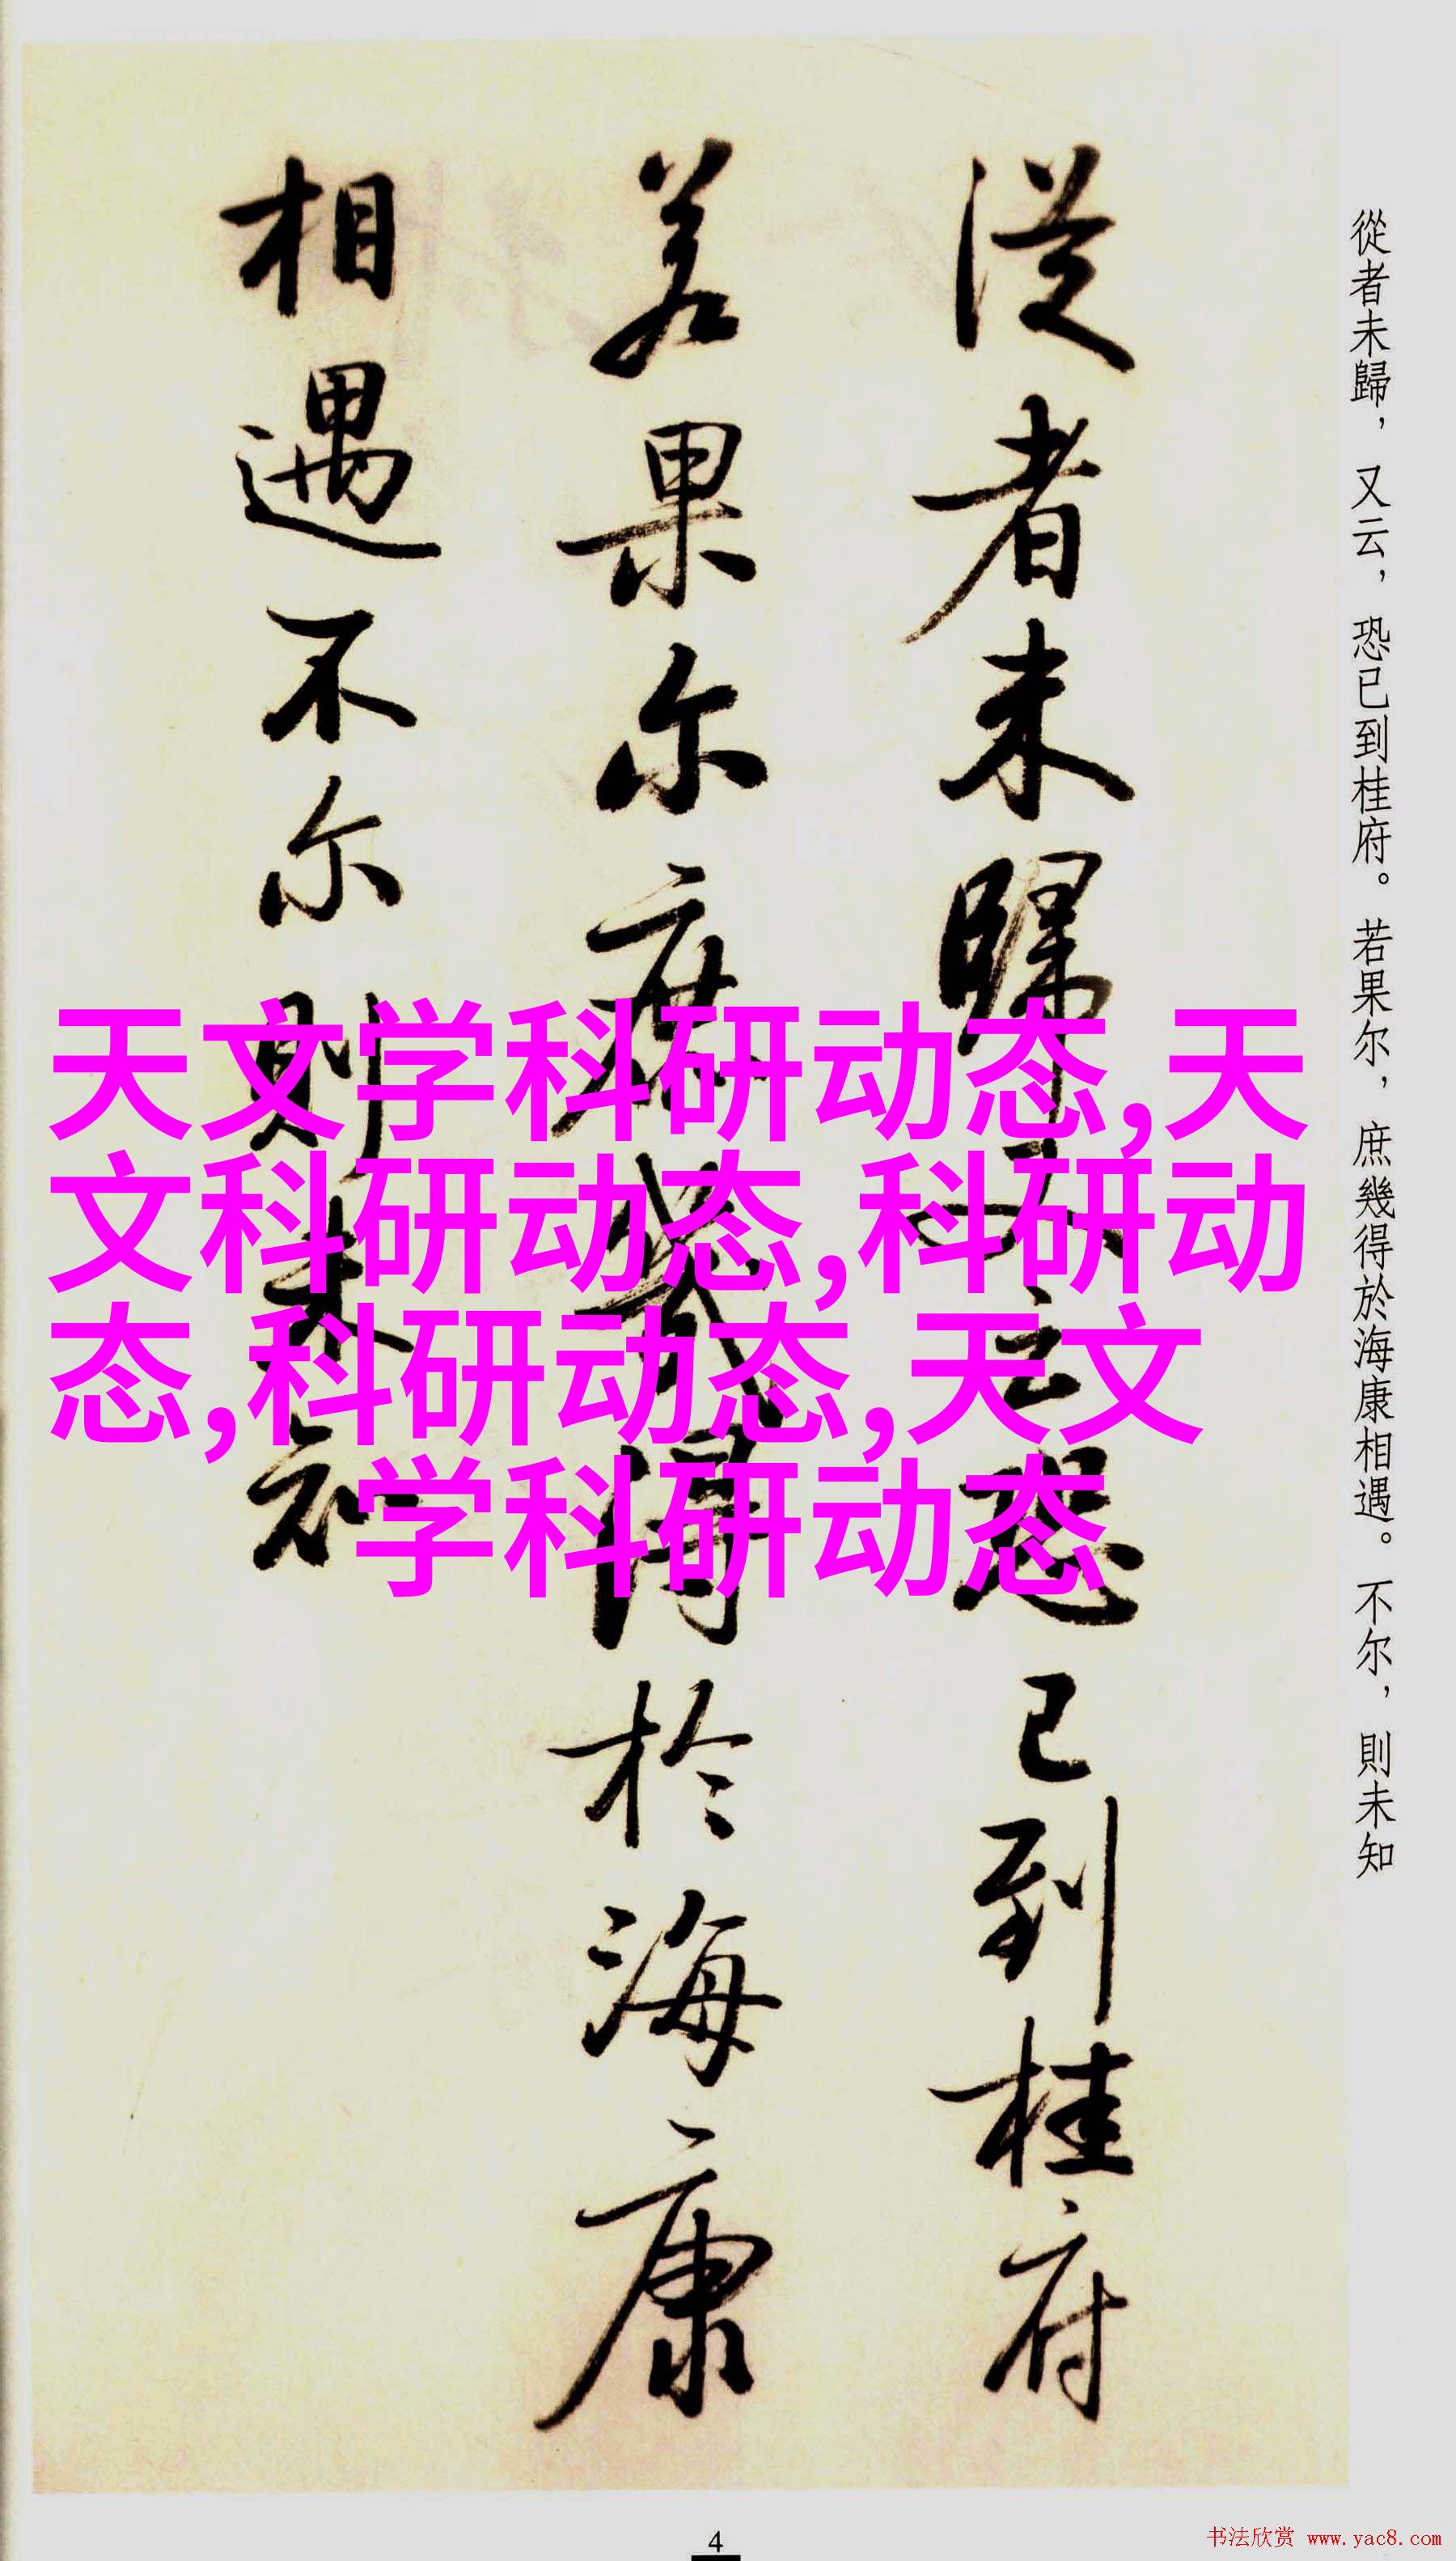 從者未歸，又云，恐已到桂府。若果尔，庶幾得於海康相遇。不尔，則未知
従者未歸又云恐已到桂府
若果尔庶幾得於海康
相遇不尔則未知
天文学科研动态,天
文科研动态,科研动
态,科研动态,天文
学科研动态
4
书法欣赏 www.yac8.com